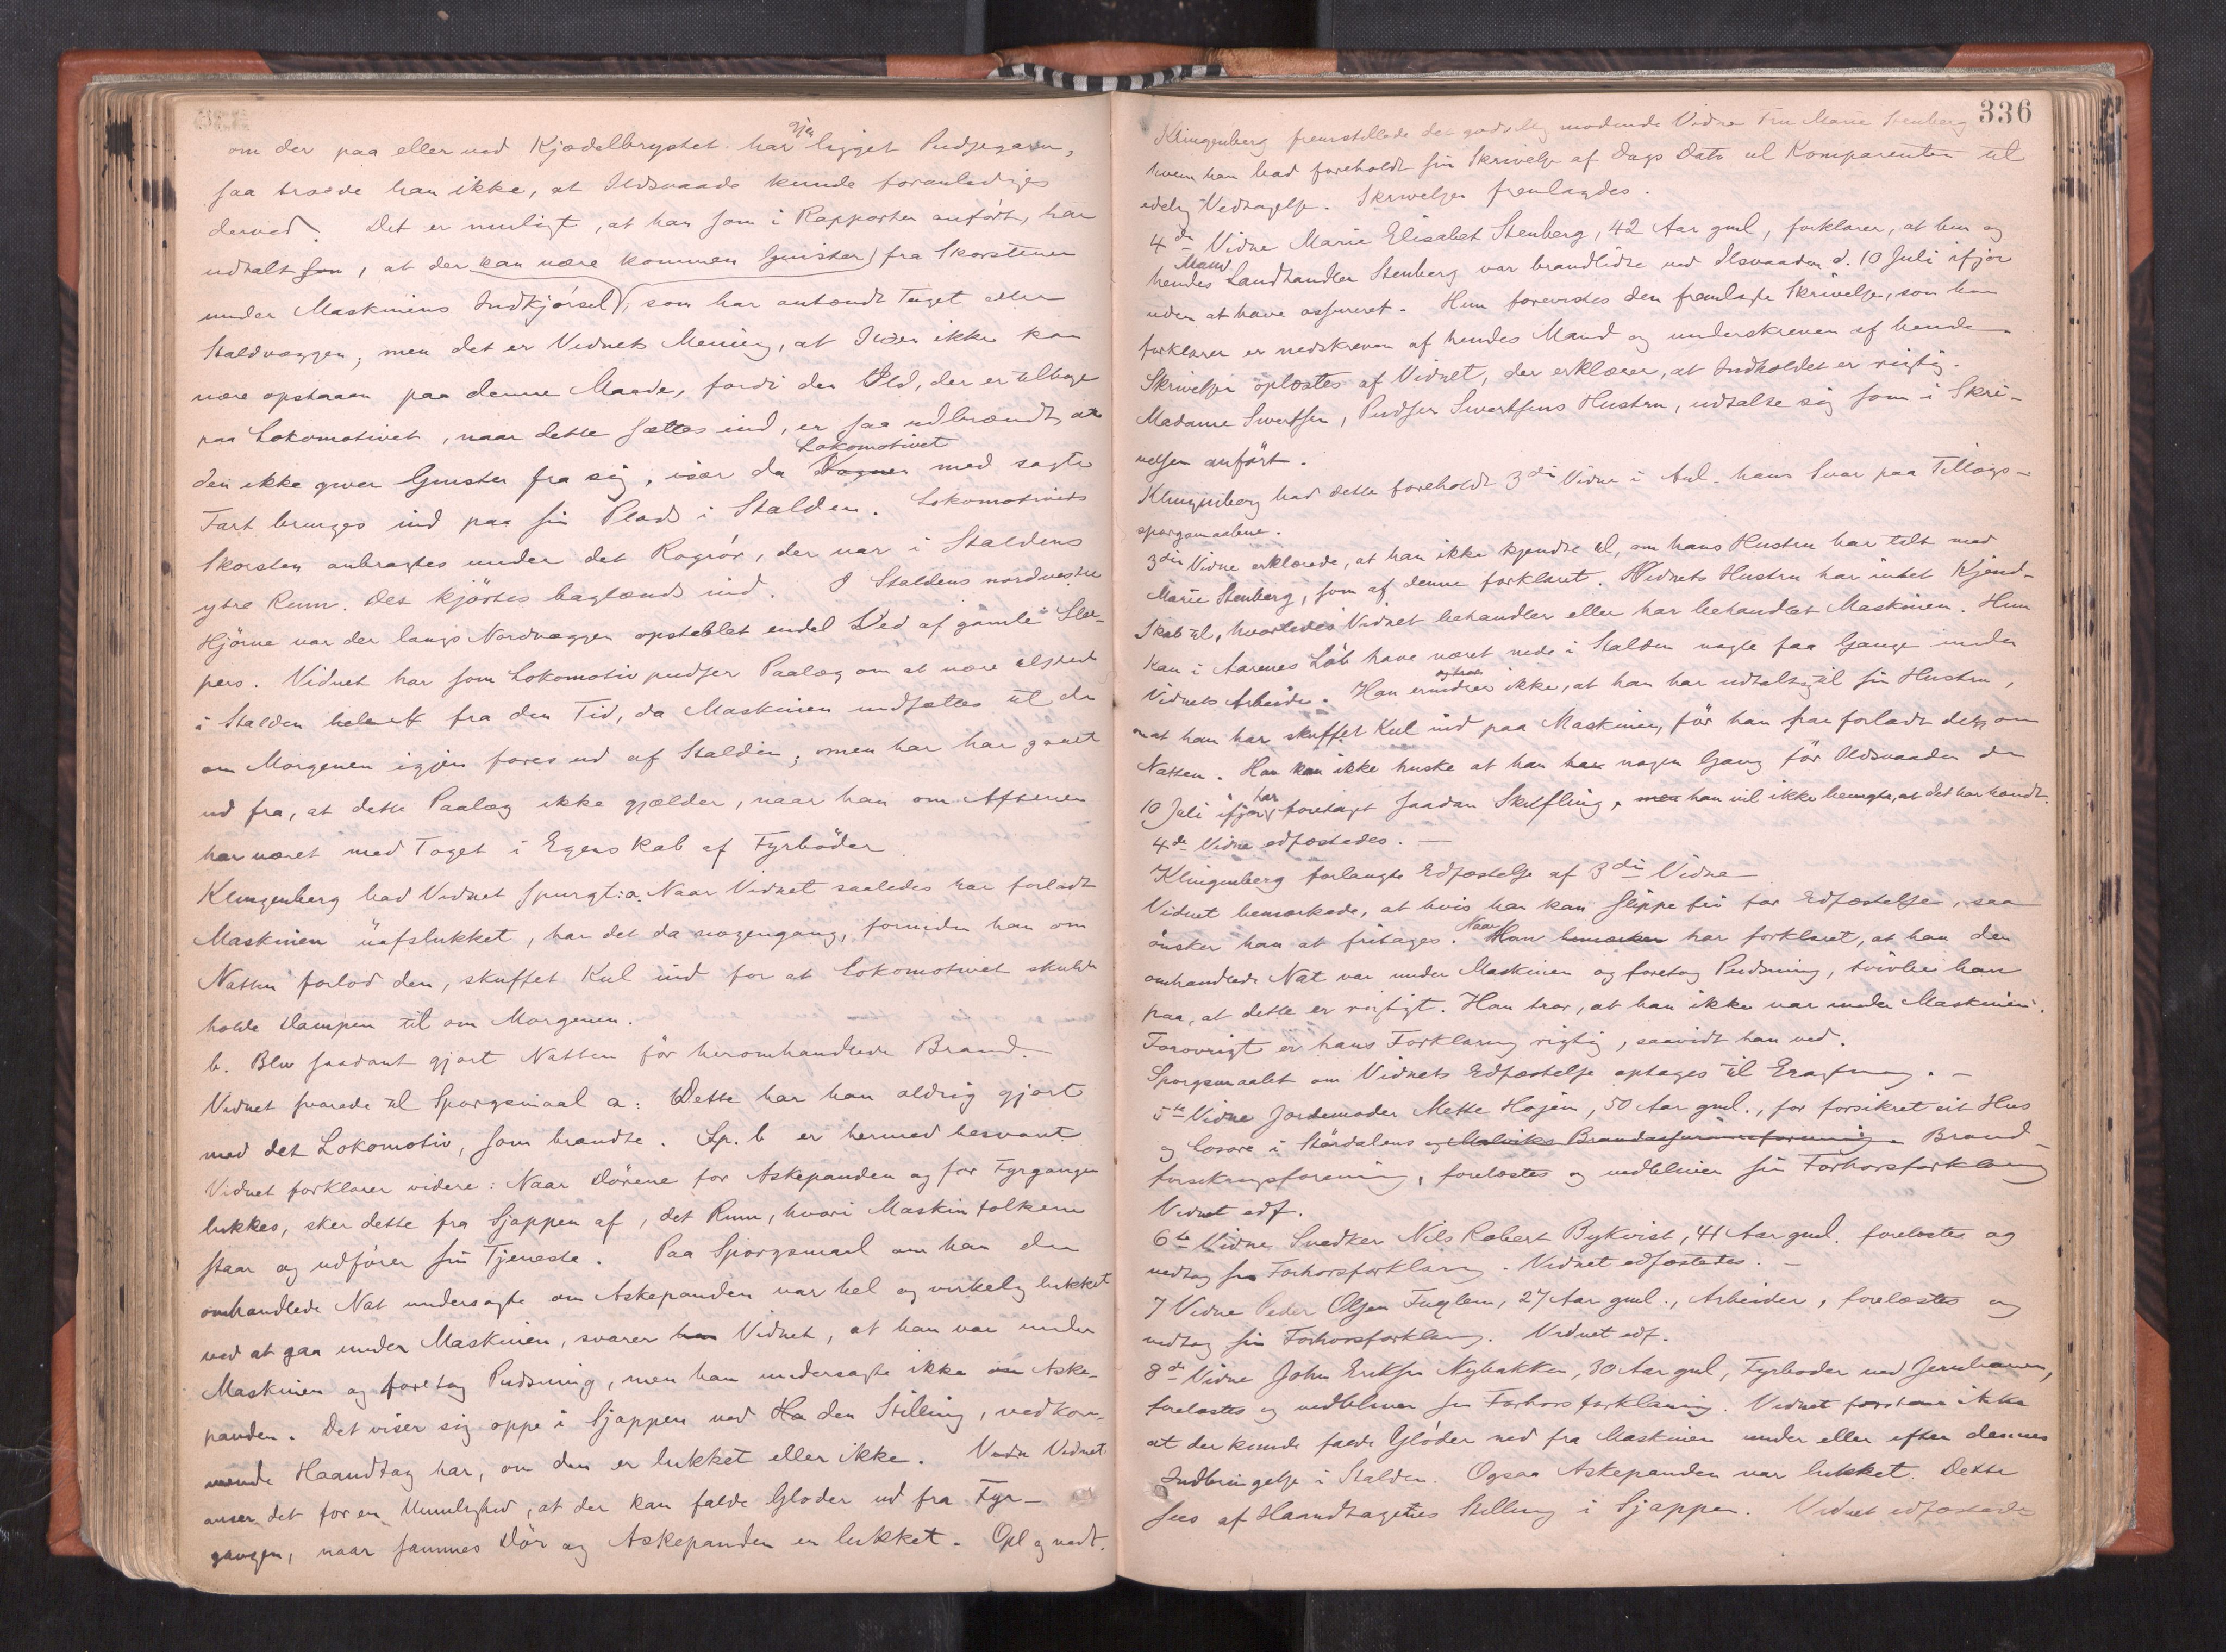 om der paa eller ved Kjædelbrystet har igjen ligget Pudsegarn,
saa troede han ikke, at Ildsvaade kunde foranlediges
derved. Det er muligt, at han som i Rapporten anført, har
udtalt, at der kan være kommen Gnister fra Skorstenen
under Maskinens Indkjørsel, som har antændt Taget eller
Staldvæggen; men det er Vidnets Mening, at Ilden ikke kan
være opstaaet paa denne Maade, fordi den Ild, der er tilbage
paa Lokomotivet, naar dette sættes ind, er saa udbrændt, at
den ikke giver Gnister fra sig, især da Lokomotivet med sagte
Fart bringes ind paa sin Plads i Stalden. Lokomotivets
Skorsten anbragtes under det Rogrör, der var i Staldens
ytre Rum. Det kjørtes baglænds ind. I Staldens nordvestre
Hjörne var der langs Nordvæggen opstablet endel Ved af gamle Sle-
pers. Vidnet har som Lokomotivpudser Paalæg om at være tilstede
i Stalden fra den Tid, da Maskinen indsættes til den
om Morgenen igjen føres ud af Stalden; men har har gaaet
ud fra, at dette Paalæg ikke gjælder, naar han om Aftenen
har været med Toget i Egenskab af Fyrböder
Klingenberg bad Vidnet spurgt: a. Naar Vidnet saaledes har forladt
Maskinen uafslukket, har det da nogengang, forinden han om
Natten forlod den, skuffet Kul ind for at Lokomotivet skulde
holde Dampen til om Morgenen.
b. Blev saadant gjort Natten för heromhandlede Brand.
Vidnet svarede til Spørgsmaal a: Dette har han aldrig gjort
med det Lokomotiv, som brændte. Sp. b er hermed besvaret
Vidnet forklarer videre: Naar Dörene for Askepanden og for Fyrgangen
lukkes, sker dette fra Sjappen af, det Rum, hvori Maskinfolkene
staar og udfører sin Tjeneste. Paa Spørgsmaal om han den
omhandlede Nat undersøgte om Askepanden var hel og virkelig lukket
ved at gaa under Maskinen, svarer Vidnet, at han var under
Maskinen og foretog Pudsning, men han undersøgte ikke Aske-
panden. Det viser sig oppe i Sjappen ved den Stilling, vedkom-
mende Haandtag har, om den er lukket eller ikke. Vidnet
anser det for en Umulighed, at der kan falde Gløder ud fra Fyr-
gangen, naar sammes Dör og Askepanden er lukket. Opl og vedt.
336
Klingenberg fremstillede det godvillig mødende Vidne Fru Marie Stenberg
hvem han bad foreholdt sin Skrivelse af Dags Dato til Komparenten til
edelig Vedtagelse. Skrivelsen fremlagdes.
4de Vidne Marie Elisabet Stenberg, 42 Aar gml, forklarer, at hun og
hendes Mand Landhandler Stenberg var brandlidte ved Ilsvaaden d. 10 Juli ifjor
uden at have assureret. Hun forevistes den fremlagte Skrivelse, som hun
forklarer er nedskreven af hendes Mand og underskreven af hende.
Skrivelsen oplæstes af Vidnet, der erklærer, at Indholdet er rigtig.
Madame Sivertsen, Pudser Sivertsens Hustru, udtalte sig som i Skri-
velsen anført.
Klingenberg bad dette foreholdt 3die Vidne i Anl. hans Svar paa Tillægs-
spørgsmaalene.
3die Vidne erklærede, at han ikke kjendte til, om hans Hustru har talt med
Marie Stenberg, som af denne forklaret. Vidnets Hustru har intet Kjend-
skab til, hvorledes Vidnet behandler eller har behandlet Maskinen. Hun
kan i Aarenes Löb have været nede i Stalden nogle faa Gange under
Vidnets Arbeide. Han erindrer ikke, at han har udtalt til sin Hustru,
at han har skuffet Kul ind paa Maskinen, för han har forladt det om
Natten. Han kan ikke huske at han nogen Gang för Ildsvaaden den
10 Juli ifjor har foretaget saadan Skufling, men han vil ikke benegte, at det har hændt.
4de Vidne edfæstedes. —
Klingenberg forlangte Edfæstelse af 3die Vidne
Vidnet bemærkede, at hvis han kan slippe fri for Edfæstelse, saa
ønsker han at fritages. Naar han har forklaret, at han den
omhandlede Nat var under Maskinen og foretog Pudsning, tvivler han
paa, at dette er rigtigt. Han tror, at han ikke var under Maskinen.
Forøvrigt er hans Forklaring rigtig, saavidt han ved.
Spørgsmaalet om Vidnets Edfæstelse optages til Eragtning. —
5te Vidne Jordemoder Mette Højem, 50 Aar gml., har forsikret sit Hus
og Losøre i Stördalens og Malviks Brandassuranceforening. Brand-
forsikringsforening, forelæstes og vedbliver sin Forhørsforklaring
Vidnet edf.
6te Vidne Snedker Nils Robert Bykvist, 41 Aar gml. forelæstes og
vedtog sin Forhørsforklaring. Vidnet edfæstedes. —
7 Vidne Peder Olsen Fuglem, 27 Aar gml., Arbeider, forelæstes og
vedtog sin Forhørsforklaring. Vidnet edf.
8de Vidne John Eriksen Nybakken, 30 Aar gml, Fyrbøder ved Jernbanen,
forelæstes og vedbliver sin Forhørsforklaring. Vidnet forstaar ikke
at der kunde falde Gløder ned fra Maskinen under eller efter dennes
Indbringelse i Stalden. Ogsaa Askepanden var lukket. Dette
sees af Haandtagets Stilling i Sjappen. Vidnet edfæstede